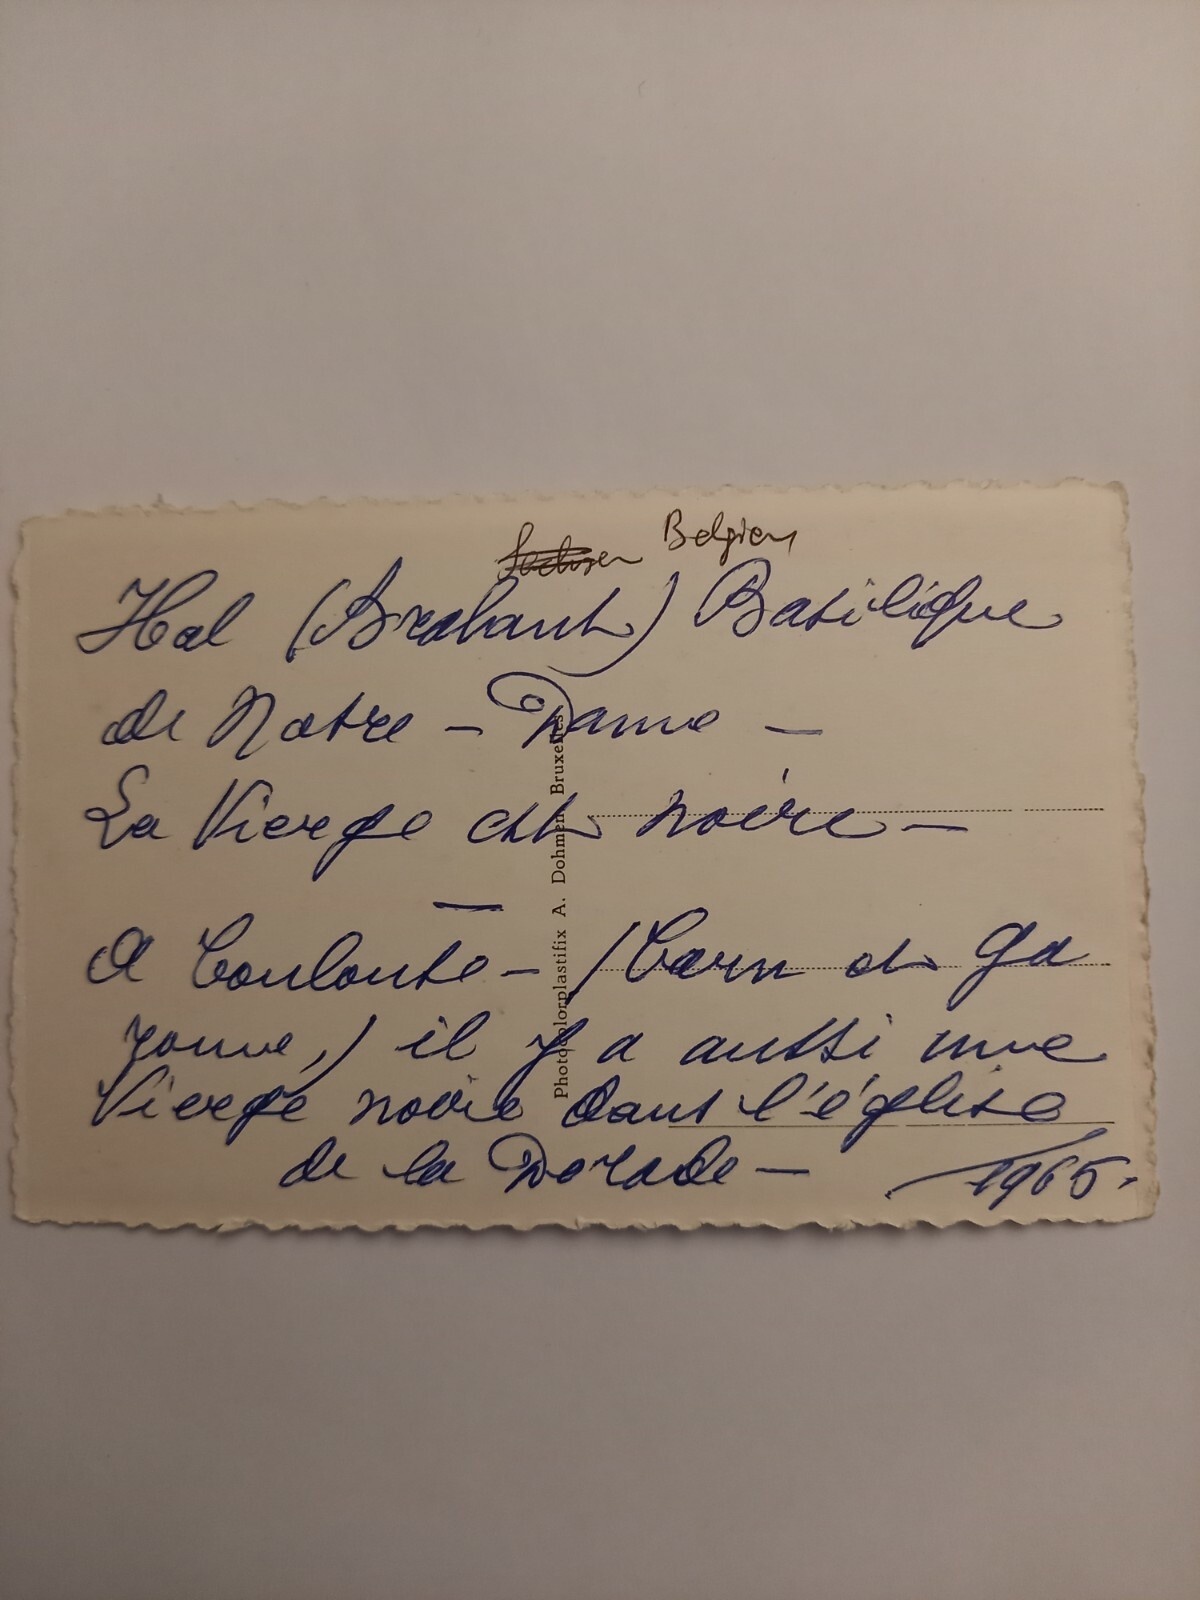 Sachsen Belgien
Hal (Brabant) Basilique
de Notre - Dame -
La Vierge est noire -
A Toulouse - (Tarn et Ga
ronne,) il y a aussi une
Vierge noire dans l'église
de la Dorade - 1965.
Photocolorplastifix A. Dohmen Bruxelles